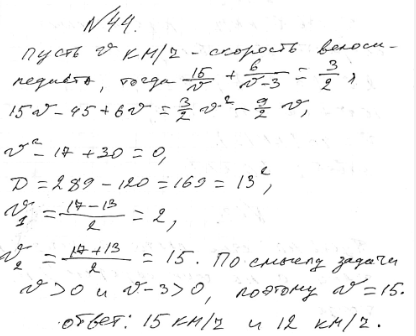 №44.
Пусть v км/ч - скорость велоси-
педиста, тогда 15/v + 6/(v-3) = 3/2,
15v - 45 + 6v = 3/2 v² - 9/2 v,
v² - 17 + 30 = 0,
D = 289 - 120 = 169 = 13²,
v₁ = (17-13)/2 = 2,
v₂ = (17+13)/2 = 15. По смыслу задачи
v > 0 и v-3 > 0, поэтому v = 15.
ответ: 15 км/ч и 12 км/ч.